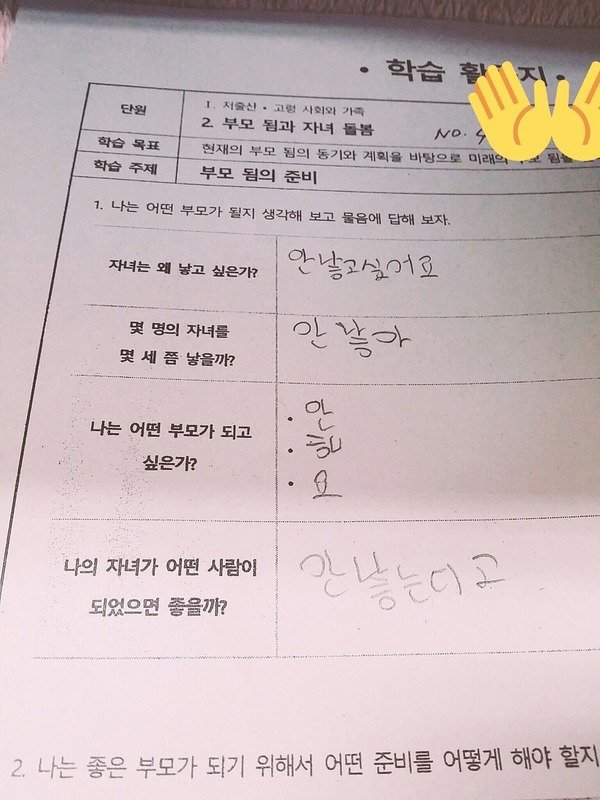 • 학습 활 지 •
단원
I. 저출산 • 고령 사회와 가족
2. 부모 됨과 자녀 돌봄
NO. 4
학습 목표
현재의 부모 됨의 동기와 계획을 바탕으로 미래의
학습 주제
부모 됨의 준비
1. 나는 어떤 부모가 될지 생각해 보고 물음에 답해 보자.
자녀는 왜 낳고 싶은가?
안 낳고싶거요
몇 명의 자녀를
몇 세 쯤 낳을까?
안 낳아
나는 어떤 부모가 되고
싶은가?
• 안
• 해
• 요
나의 자녀가 어떤 사람이
되었으면 좋을까?
안 낳는디고
2. 나는 좋은 부모가 되기 위해서 어떤 준비를 어떻게 해야 할지